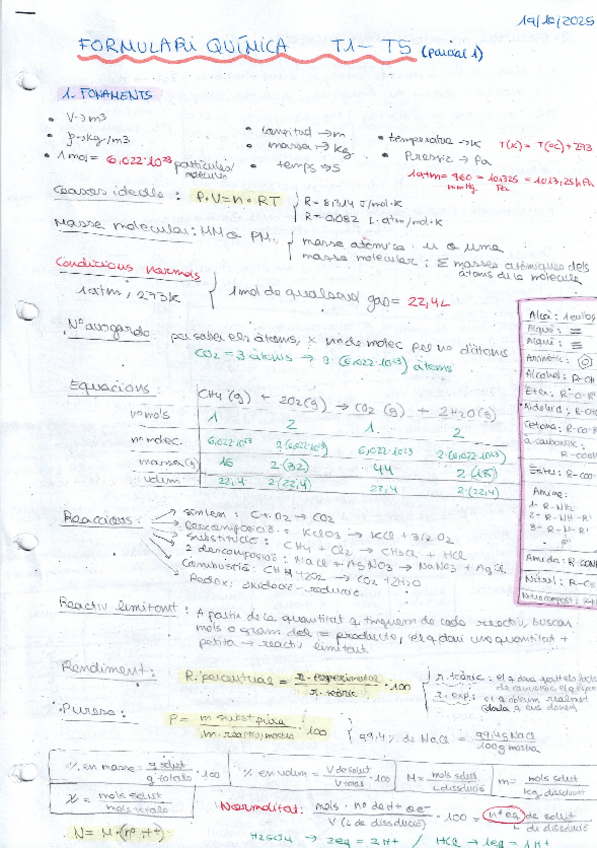 19/10/2025
FORMULARI QUÍMICA T1 - T5 (parcial 1)
1. FONAMENTS
• V → m³
• ρ → kg/m3
• 1 mol = 6,022·10²³ partícules/molècules
• longitud → m
• massa → kg
• temps → s
• temperatura → K T(K) = T(ºC) + 273
• Pressió → Pa
1 atm = 760 mmHg = 101325 Pa = 1013,25 hPa
Gasos ideals: P·V = n·RT { R = 8,314 J/mol·K
R = 0,082 L·atm/mol·K
Massa molecular: MM o PM { massa atòmica: u o uma
massa molecular: Σ masses atòmiques dels àtoms de la molècula
Condicions normals
1 atm, 273K { 1 mol de qualsevol gas = 22,4 L
Nº avogadro per saber els àtoms, x nº de molec per nº d'àtoms
CO2 = 3 àtoms → 3·(6,022·10²³) àtoms
Equacions: CH4 (g) + 2O2 (g) → CO2 (g) + 2H2O (g)
nº mols 1 2 1 2
nº molec. 6,022·10²³ 2(6,022·10²³) 6,022·10²³ 2·(6,022·10²³)
massa (g) 16 2·(32) 44 2(18)
volum: 22,4 2·(22,4) 22,4 2·(22,4)
Reaccions:
síntesi: C + O2 → CO2
Descomposició: KClO3 → KCl + 3/2 O2
Substitució: CH4 + Cl2 → CH3Cl + HCl
2 descomposició: NaCl + AgNO3 → NaNO3 + AgCl
Combustió: CH4 + 2O2 → CO2 + 2H2O
Redox: oxidació - reducció.
Reactiu limitant: A partir de la quantitat q tinguem de cada reactiu, buscar
mols o gram del = producte, el q doni una quantitat +
petita → reactiu limitant.
Rendiment: R. percentual = r. experimental / r. teòric · 100
r. teòric: el q
r. exp: el q obtenim realment
Puresa: P = m subst pura / m. reactiu/mostra · 100 { 99,4% de NaCl = 99,4g NaCl / 100g mostra
% en massa = g solut / g totals · 100
% en volum = V de solut / V total · 100
M = mols solut / L dissolució
m = mols solut / kg dissolvent
χ = mols solut / mols totals
Normalitat: mols · nº de H+ o e- / V (L de dissolució) · 100 = nº eq de solut / L de dissolució
N = M·(nº H+)
H2SO4 → 2eq = 2H+ / HCl → 1eq = 1H+
Alcà: 1 enllaç
Alquè: =
Alquí: ≡
Aromàtic:
Alcohol: R-OH
Èter: R-O-R'
Aldehid: R-CH
Cetona: R-CO-R
à. carboxílic:
R-COOH
Èster: R-COO-
Amina:
1- R-NH2
2- R-NH-R'
3- R-N-R'
R''
Amida: R-CONH
Nitril: R-C≡
Nitrocompost: R-N